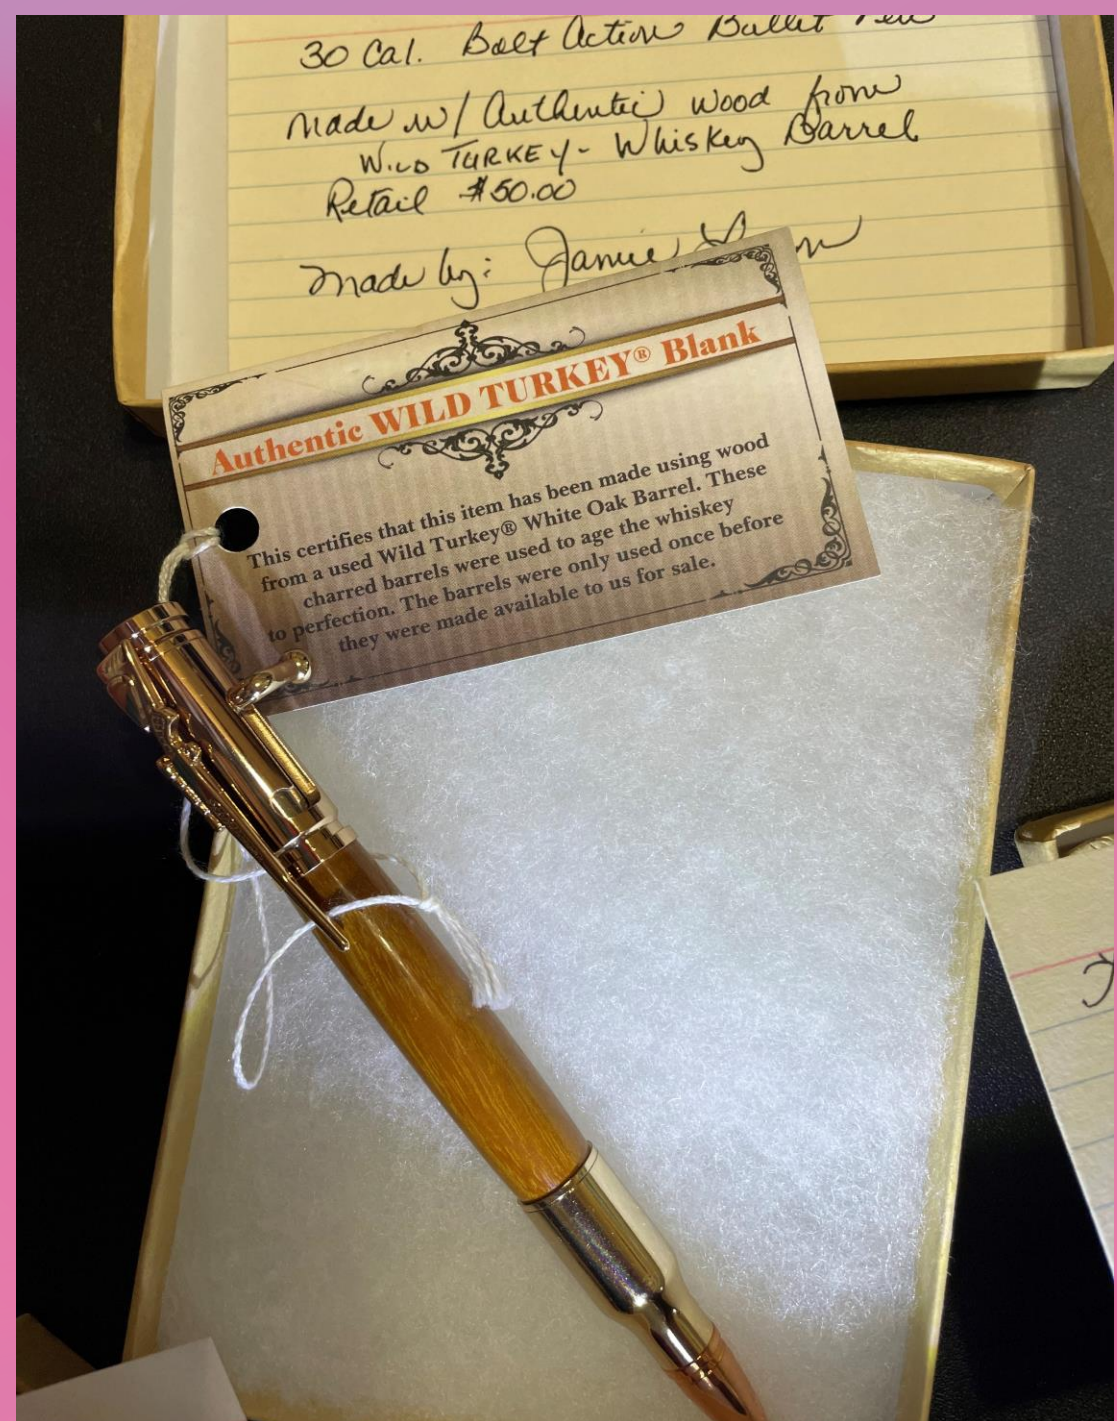 30 Cal. Bolt Action Bullet Pen
Made w/ Authentic wood from
WILD TURKEY - Whiskey Barrel
Retail $50.00
Made by: Jamie
Authentic WILD TURKEY® Blank
This certifies that this item has been made using wood
from a used Wild Turkey® White Oak Barrel. These
charred barrels were used to age the whiskey
to perfection. The barrels were only used once before
they were made available to us for sale.